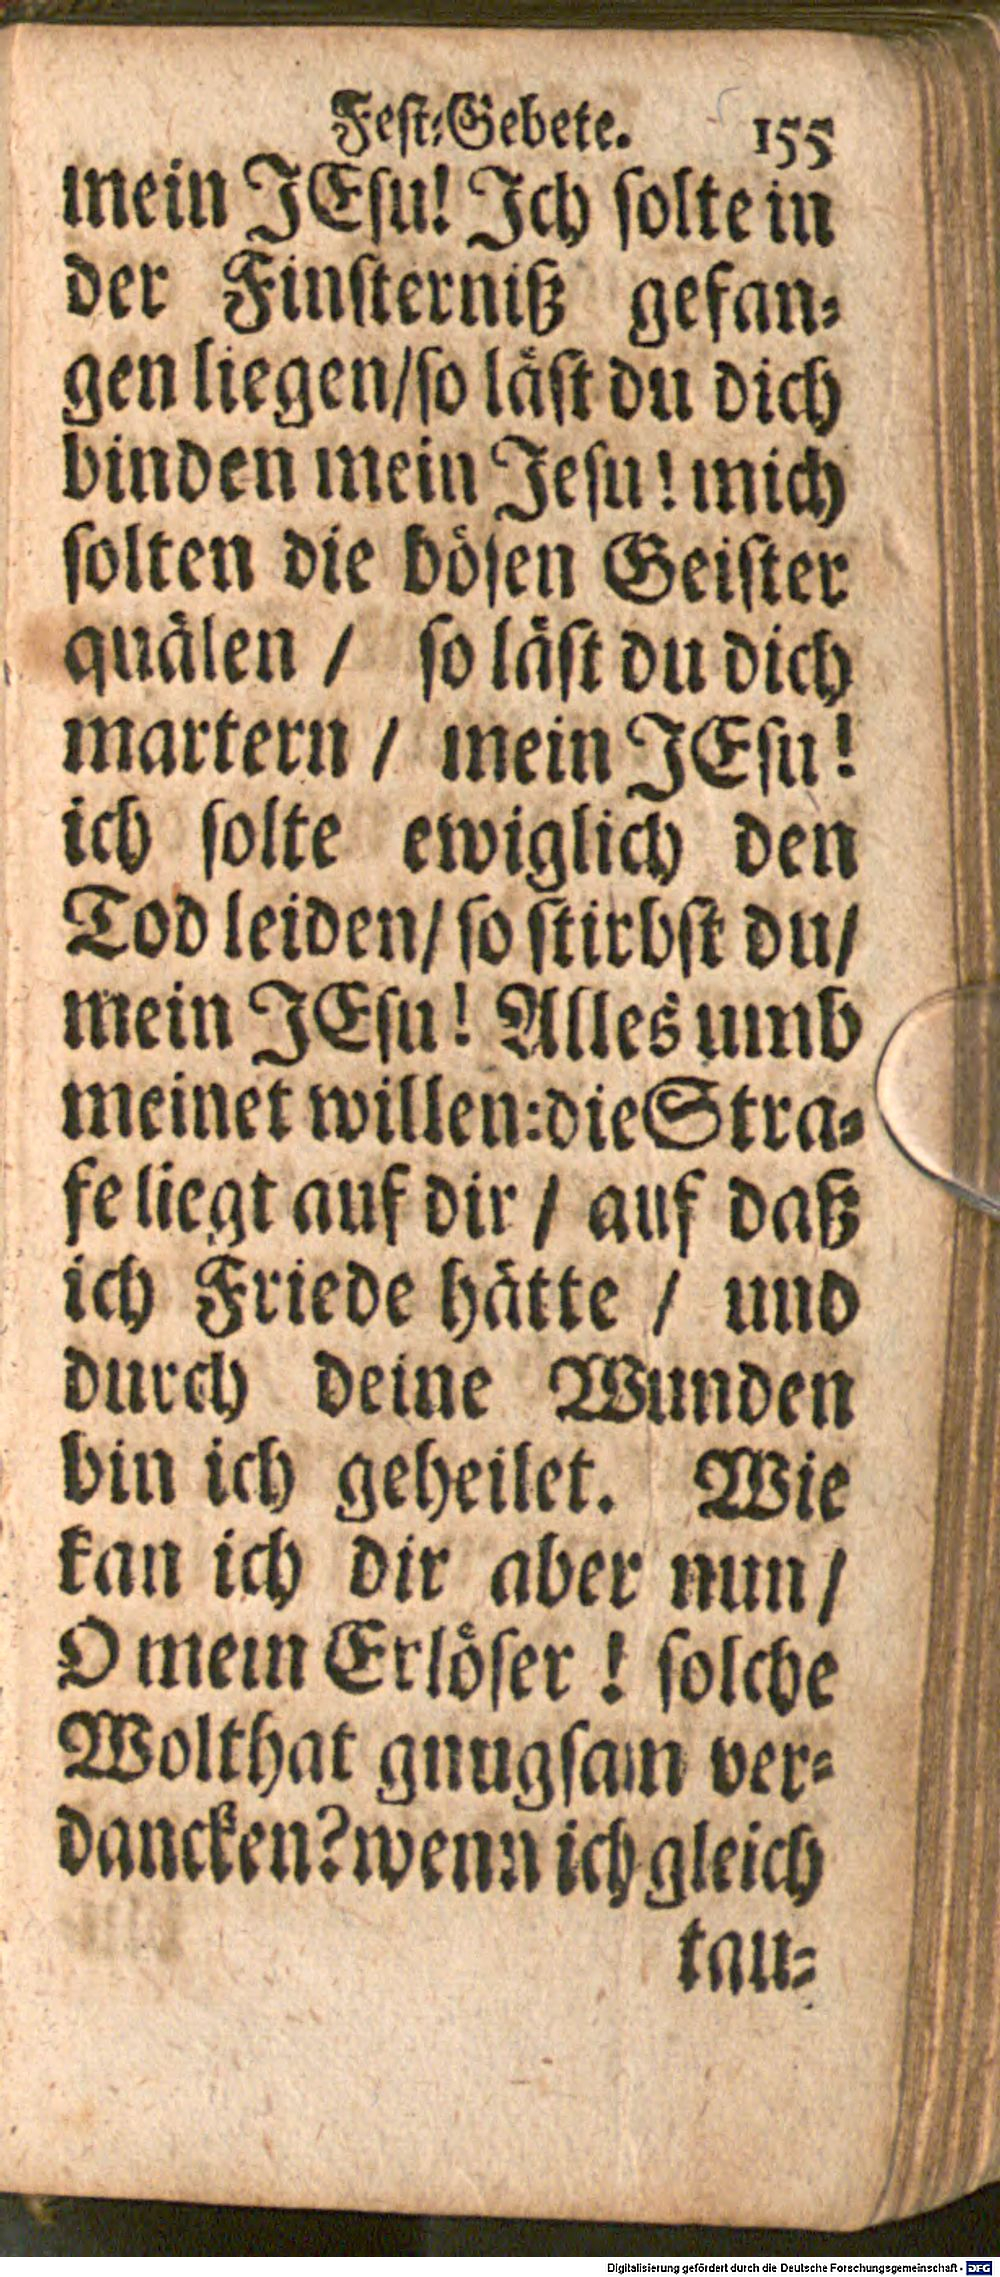 Fest-Gebete. 155
mein JEsu! Ich solte in
der Finsterniß gefan-
gen liegen/so läst du dich
binden mein Jesu! mich
solten die bösen Geister
quälen / so läst du dich
martern / mein JEsu!
ich solte ewiglich den
Tod leiden/ so stirbst du/
mein JEsu! Alles umb
meinet willen:die Stra-
fe liegt auf dir / auf daß
ich Friede hätte / und
durch deine Wunden
bin ich geheilet. Wie
kan ich dir aber nun/
O mein Erlöser ! solche
Wolthat gnugsam ver-
dancken? wenn ich gleich
tau-
Digitalisierung gefördert durch die Deutsche Forschungsgemeinschaft - DFG